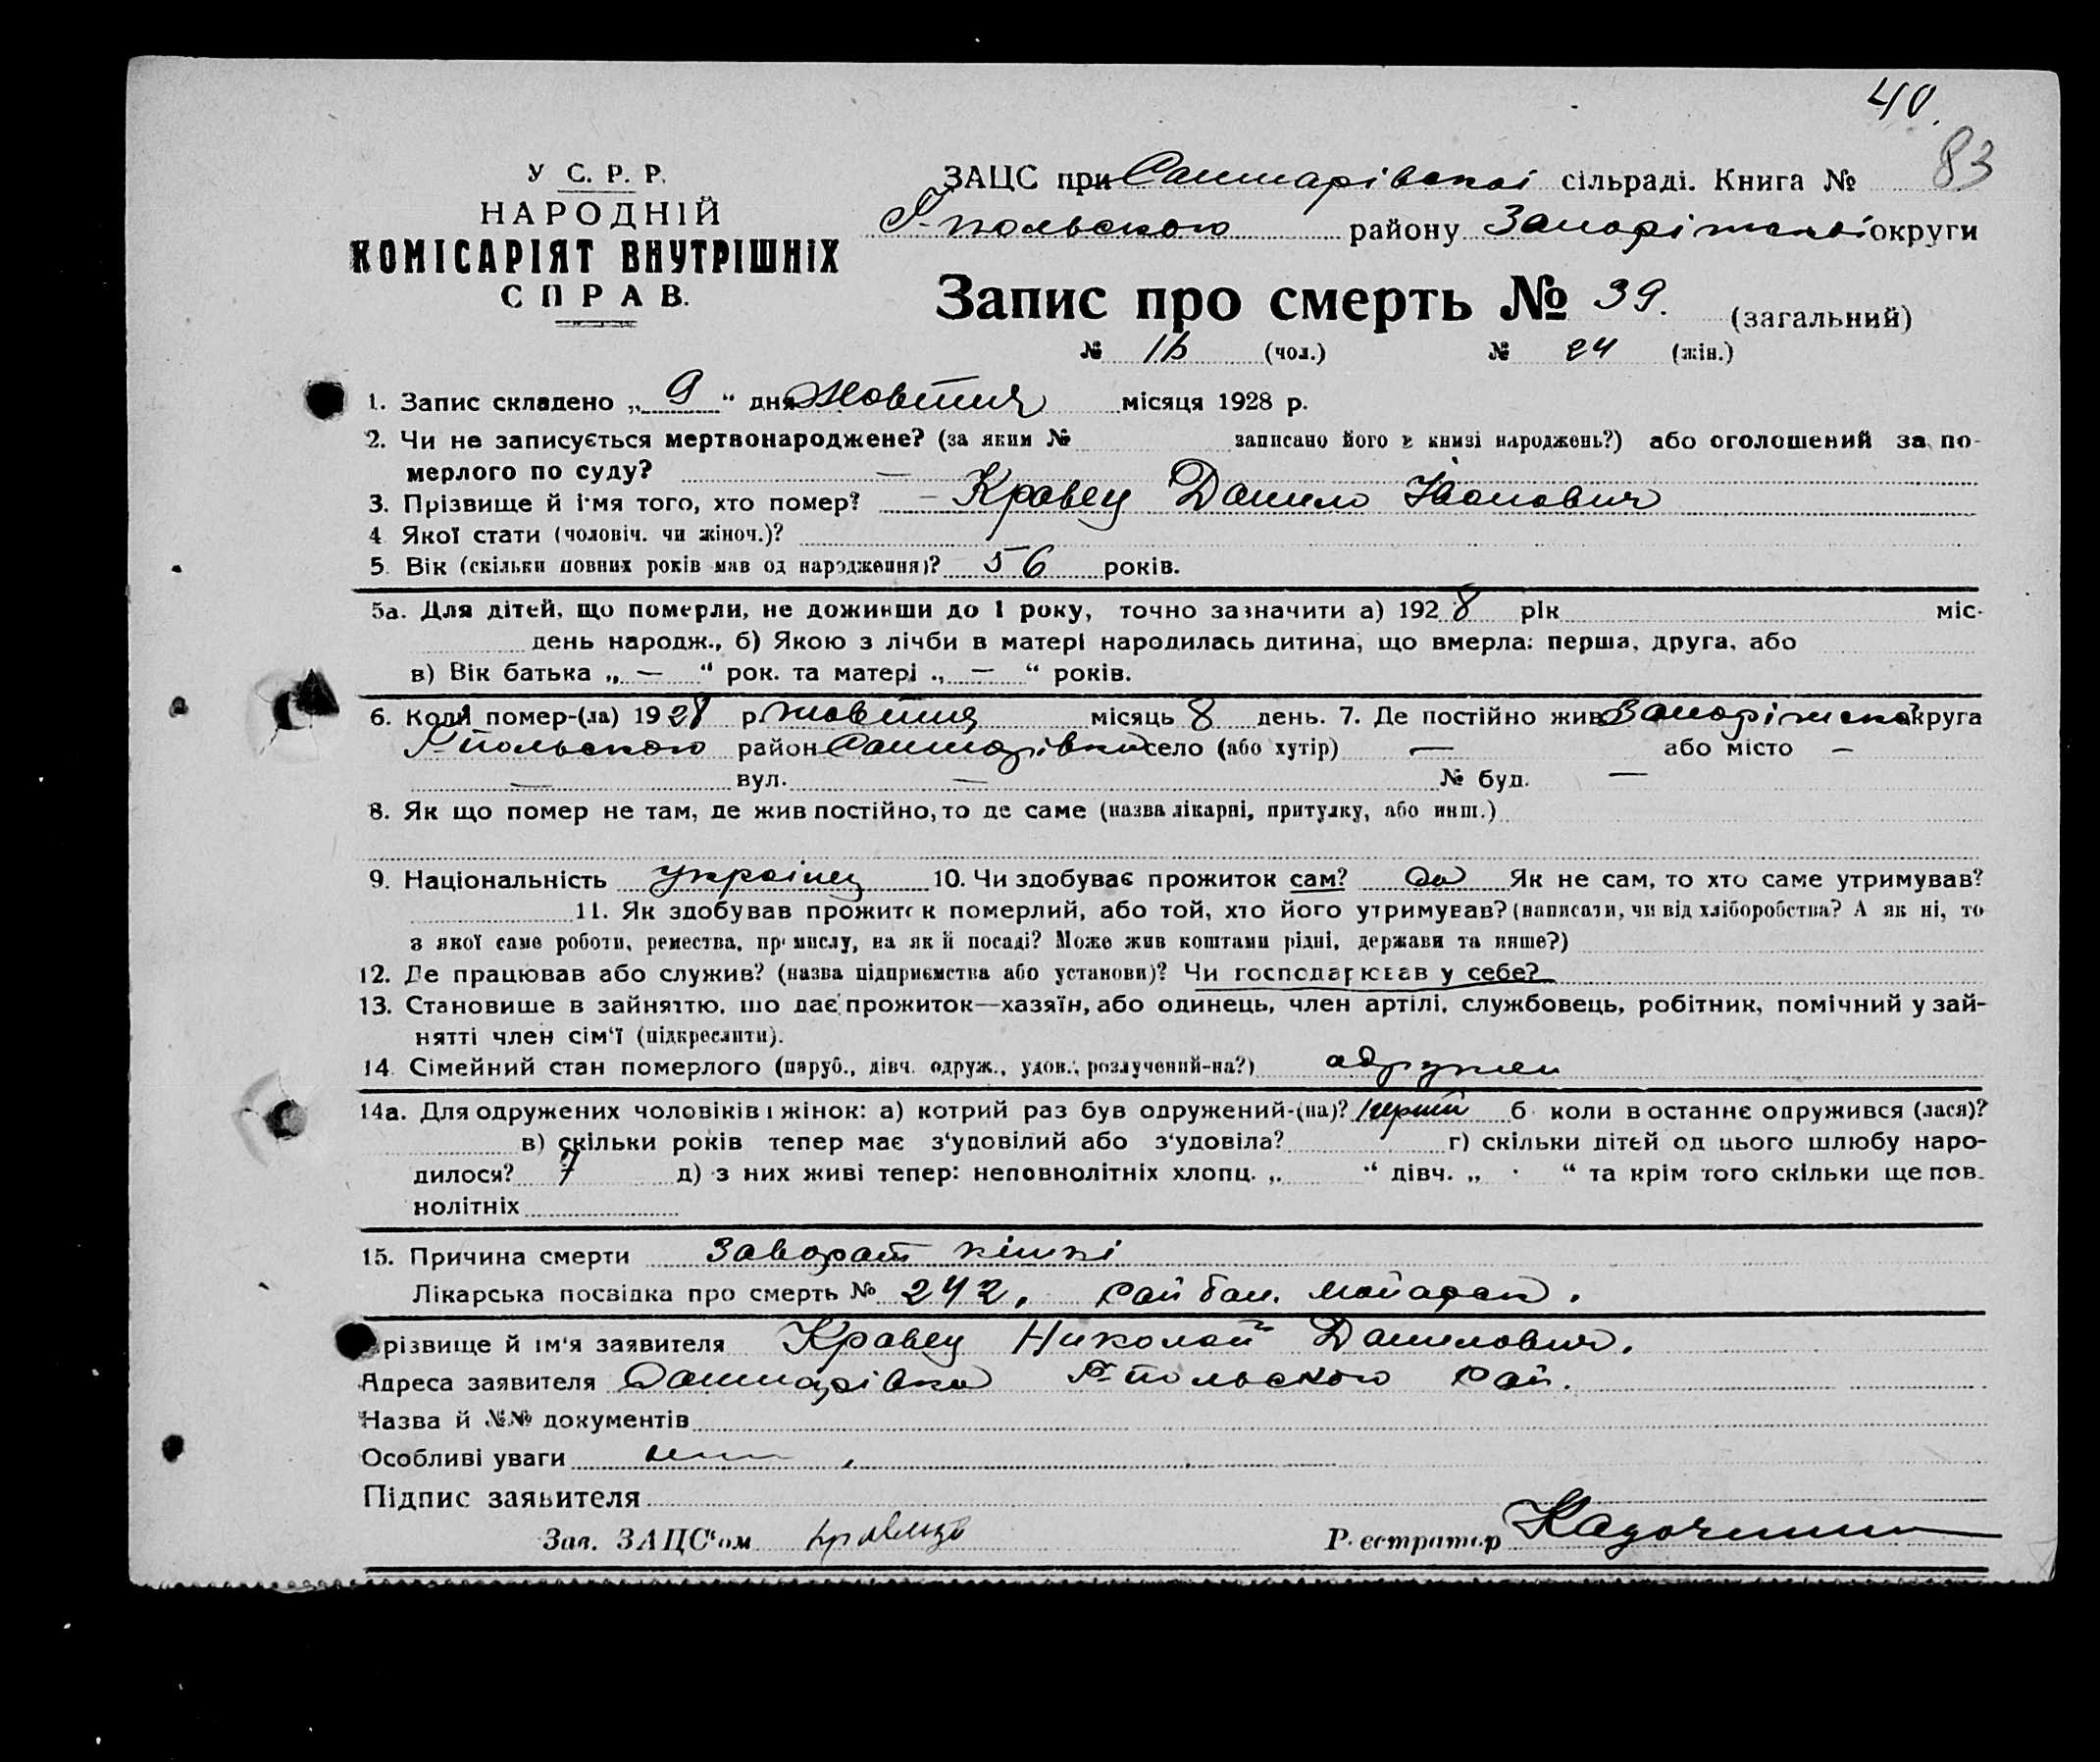 40.
83
У С. Р. Р.
НАРОДНІЙ
КОМІСАРІЯТ ВНУТРІШНІХ
СПРАВ.
ЗАЦС при сільраді. Книга №
Г-польського району Запоріжської округи
Запис про смерть № 39. (загальний)
№ (чол.) № 24 (жін.)
1. Запис складено „ 9 “ дня Жовтня місяця 1928 р.
2. Чи не записується мертвонароджене? (за яким № записано його в книзі народжень?) або оголошений за по-
мерлого по суду? —
3. Прізвище й ім'я того, хто помер? – Кравец Данило Іванович
4 Якої стати (чоловіч. чи жіноч.)?
5. Вік (скільки повних років мав од народження)? 56 років.
5а. Для дітей, що померли, не доживши до 1 року, точно зазначити а) 1928 рік міс.
день народж., б) Якою з лічби в матері народилась дитина, що вмерла: перша, друга, або
в) Вік батька „ — “ рок. та матері „ — “ років.
6. Коли помер-(ла) 1928 р. жовтня місяць 8 день. 7. Де постійно жив Запоріжська округа
Г-польського район село (або хутір) — або місто —
— вул. — № буд. —
8. Як що помер не там, де жив постійно, то де саме (назва лікарні, притулку, або инш.)
9. Національність українец 10. Чи здобуває прожиток сам? да Як не сам, то хто саме утримував?
11. Як здобував прожиток померлий, або той, хто його утримував? (написати, чи від хліборобства? А як ні, то
з якої саме роботи, ремества, промислу, на якій посаді? Може жив коштами рідні, держави та инше?)
12. Де працював або служив? (назва підприємства або установи)? Чи господарював у себе?
13. Становище в зайняттю, що дає прожиток—хазяїн, або одинець, член артілі, службовець, робітник, помічний у зай-
нятті член сім'ї (підкреслити).
14. Сімейний стан померлого (паруб., дівч. одруж., удов., розлучений-на?) одружен
14а. Для одружених чоловіків і жінок: а) котрий раз був одружений-(на)? перший б коли в останнє одружився (лася)?
в) скільки років тепер має з'удовілий або з'удовіла? г) скільки дітей од цього шлюбу наро-
дилося? 7 д) з них живі тепер: неповнолітніх хлопц. „ “ дівч. „ “ та крім того скільки ще пов-
нолітніх
15. Причина смерти Заворот кішкі
Лікарська посвідка про смерть № 242,
Прізвище й ім'я заявителя Кравец Николай Данилович.
Адреса заявителя Г-польского Рай.
Назва й №№ документів
Особливі уваги
Підпис заявителя
Зав. ЗАЦС'ом
Реєстратор